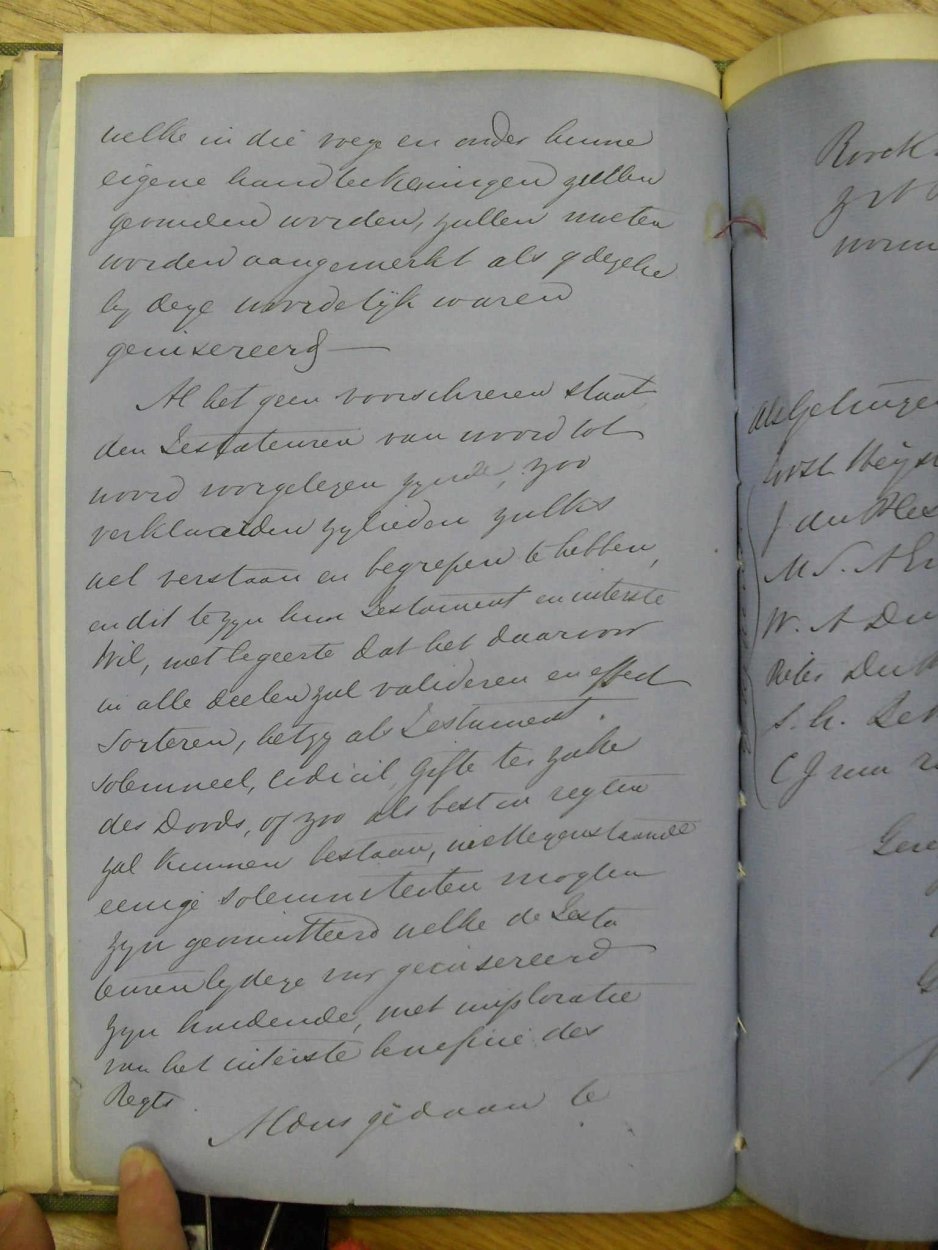 welke in die voege en onder hunne
eigene handteekeningen zullen
gevonden worden, zullen moeten
worden aangemerkt als of dezelve
by deze woordelijk waren
geinsereerd
Al het geen voorschreven staat
den Testateuren van woord tot
woord voorgelezen zynde, zoo
verklaarden zylieden zulks
wel verstaan en begrepen te hebben,
en dit te zyn hun Testament en uiterste
Wil, met begeerte dat het daarvoor
in alle deelen zal valideren en effect
Sorteren, hetzy als Testament
Solemneel, Codicil, Gifte ter zake
des Doods, of zoo als best in regten
zal kunnen bestaan, niettegenstaande
eenige solemniteiten mogten
zyn geomitteerd welke de Testa
teuren by deze voor geinsereerd
zyn houdende, met imploratie
van het uiterste benefice des
Regts.
Aldus gedaan te
Als Getuigen
J du Ples
W. A Du
Pieter Du